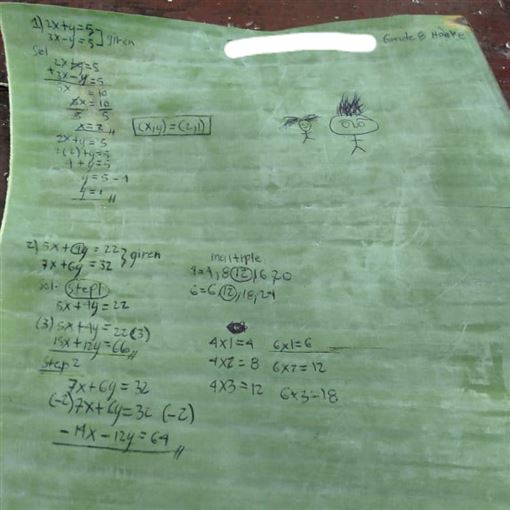 Grade 8 Hooke
1) 2x+y=5
3x-y=5 ] given
Sol
2x+y=5
+3x-y=5
5x = 10
5x = 10
5 5
x=2
2x+y=5
2(2)+y=5
4+y=5
y=5-4
y=1
(x,y)=(2,1)
2) 5x+4y=22
7x+6y=32 } given
Sol- Step1
5x+4y=22
(3) 5x+4y=22(3)
15x+12y=66
Step 2
7x+6y=32
(-2)7x+6y=32 (-2)
-14x-12y=64
multiple
4=4,8,12,16,20
6=6,12,18,24
4x1=4 6x1=6
4x2=8 6x2=12
4x3=12 6x3=18